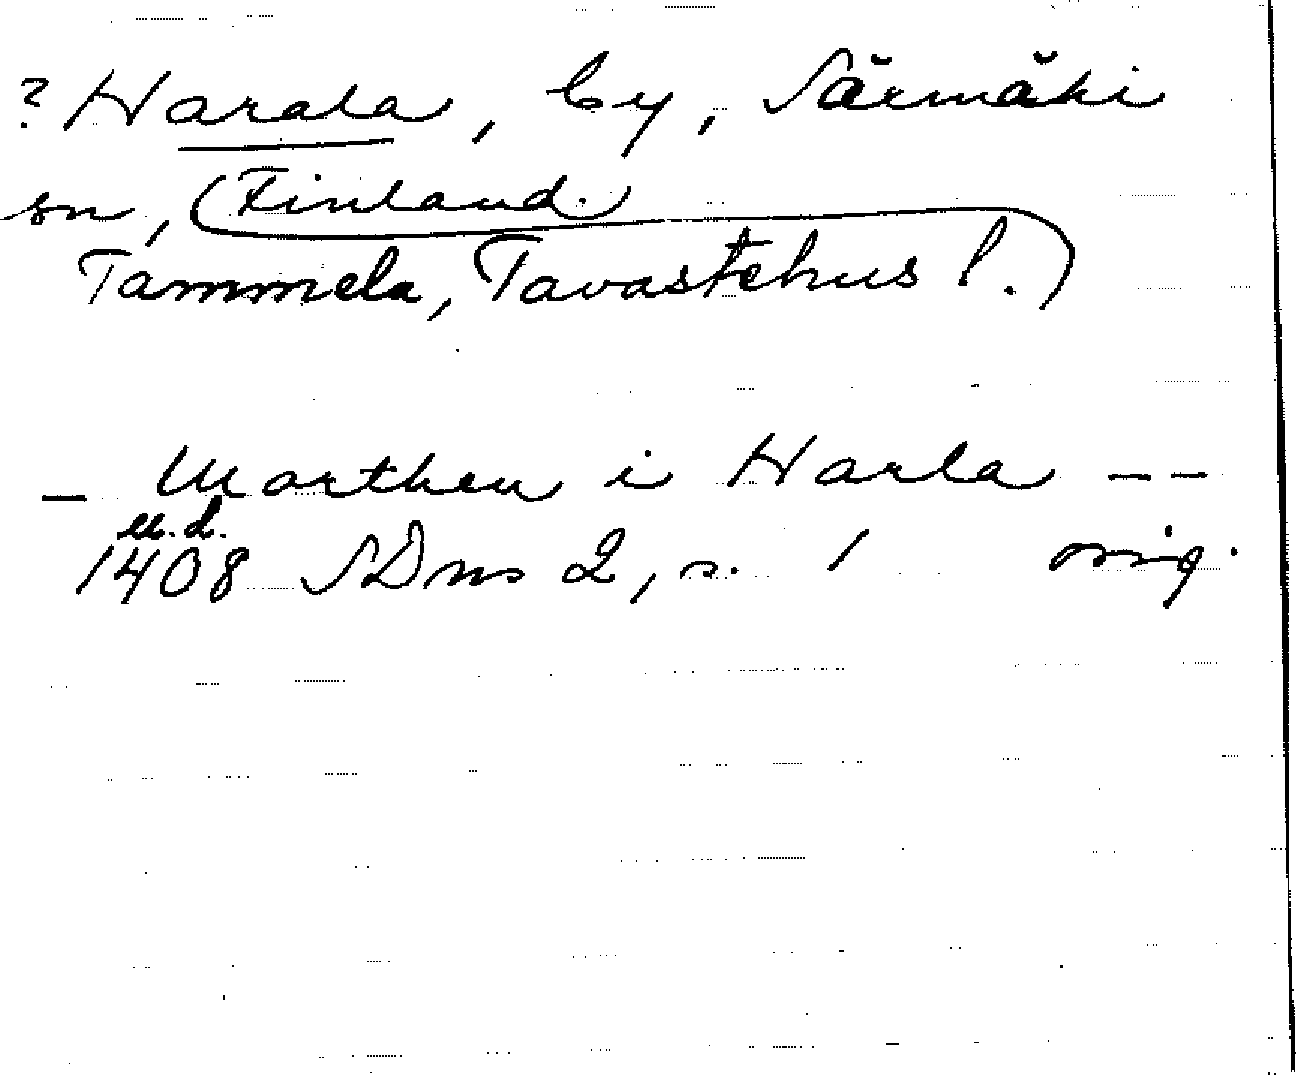 ? Harala, by, Särmäki
sn, (Finland.
Tammela, Tavastehus l.)
– Marthen i Harla – –
u.d.
1408 SDns 2, s. 1 orig.